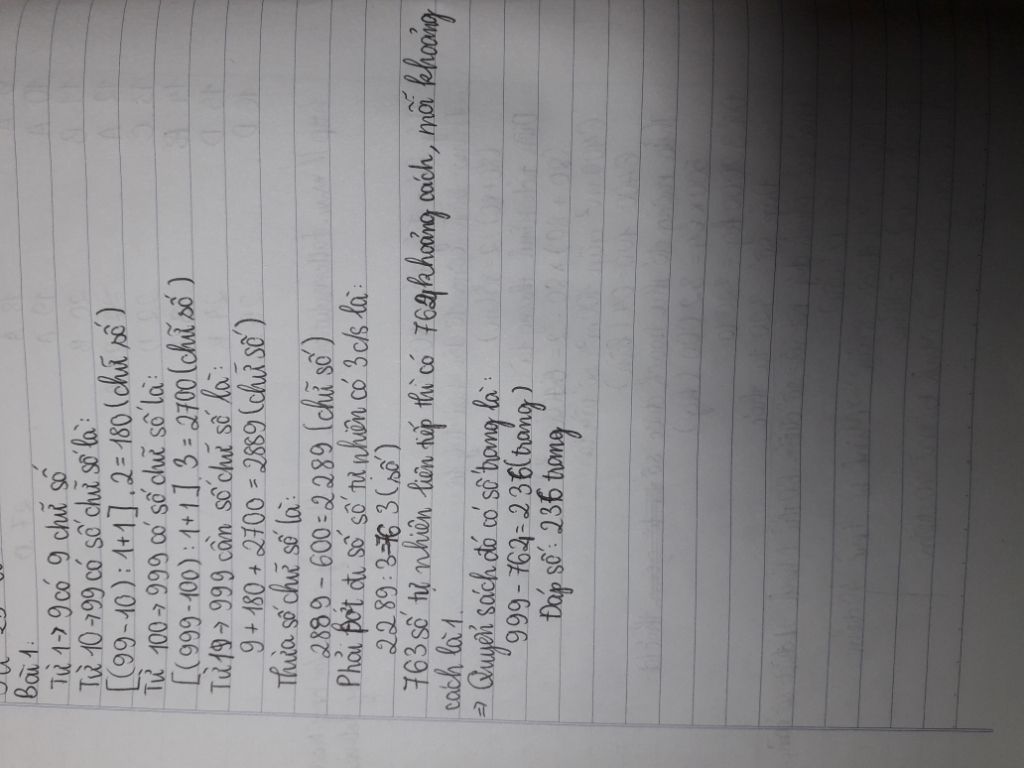 Bài 1:
Từ 1→9 có 9 chữ số
Từ 10→99 có số chữ số là:
[(99-10):1+1].2=180(chữ số)
Từ 100→999 có số chữ số là:
[(999-100):1+1].3=2700(chữ số)
Từ 1→999 cần số chữ số là:
9+180+2700=2889(chữ số)
Thừa số chữ số là:
2889-600=2289(chữ số)
Phải bớt đi số số tự nhiên có 3 chs là:
2289:3=763(số)
763 số tự nhiên liên tiếp thì có 762 khoảng cách, mỗi khoảng
cách là 1.
⇒ Quyển sách đó có số trang là:
999-763=236(trang)
Đáp số: 236 trang